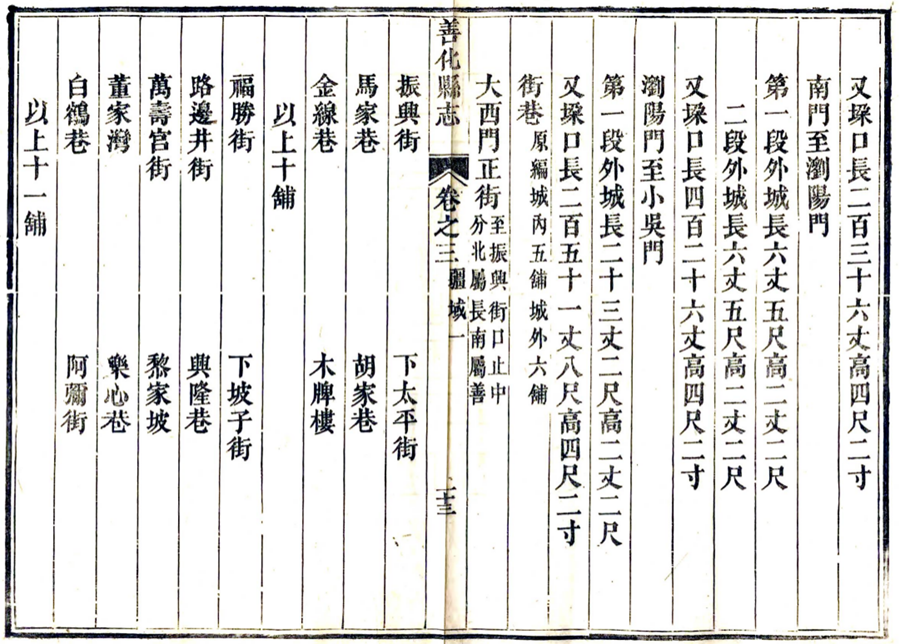 又垜口長二百三十六丈高四尺二寸
南門至瀏陽門
第一段外城長六丈五尺高二丈二尺
二段外城長六丈五尺高二丈二尺
又垜口長四百二十六丈高四尺二寸
瀏陽門至小吳門
第一段外城長二十三丈二尺高二丈二尺
又垜口長二百五十一丈八尺高四尺二寸
街巷 原編城內五舖城外六舖
大西門正街 至振興街口止中分北屬長南屬善
善化縣志 卷之三 疆域一 二十三
振興街 下太平街
馬家巷 胡家巷
金線巷 木牌樓
以上十舖
福勝街 下坡子街
路邊井街 興隆巷
萬壽宮街 黎家坡
董家灣 樂心巷
白鶴巷 阿彌街
以上十一舖